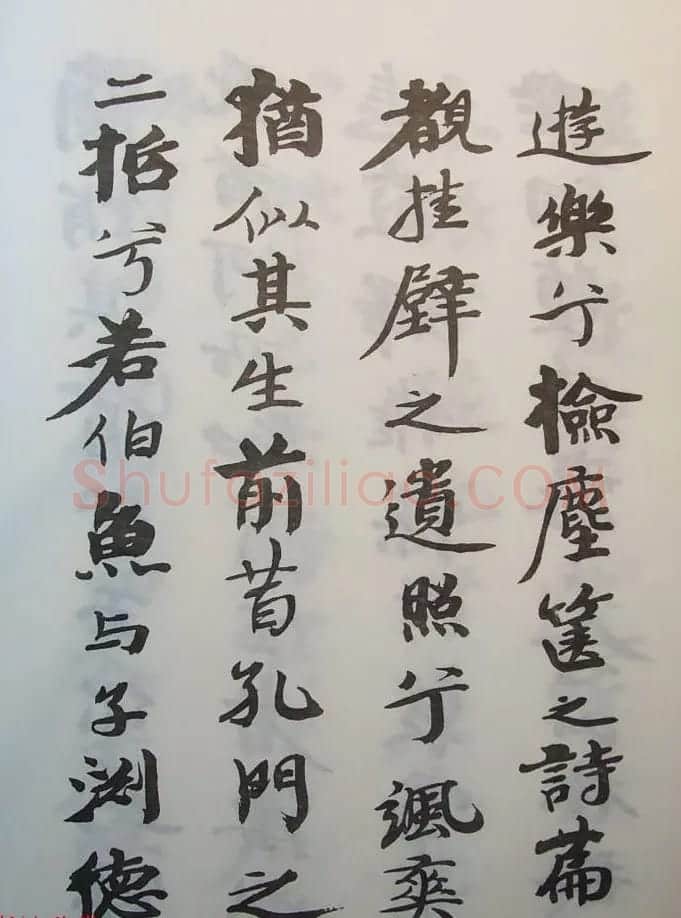 遊樂兮檢塵篋之詩篇
覩挂壁之遺照兮颯爽
猶似其生前昔孔門之
二哲兮若伯魚与子渊德
Shufaziliao.COM